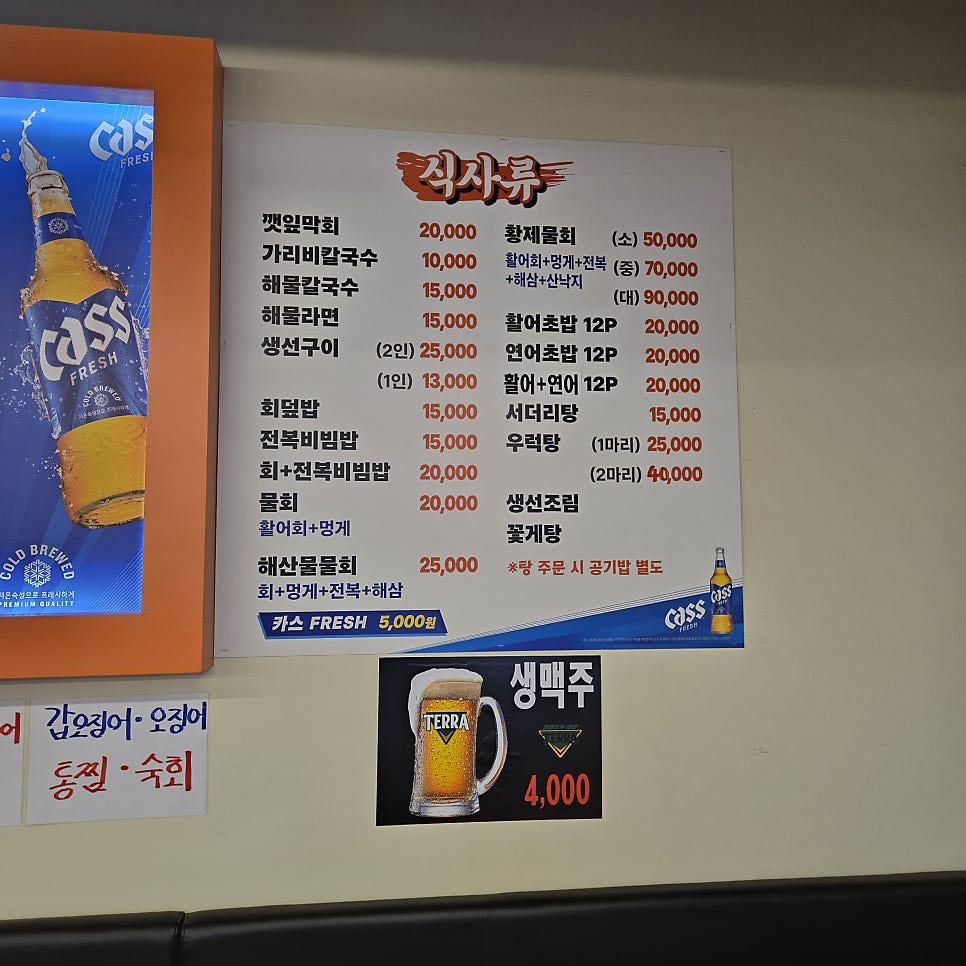 cass
FRESH
cass
FRESH
COLD BREWED
COLD BREWED
저온숙성으로 프레시하게
PREMIUM QUALITY
식사류
깻잎막회 20,000
가리비칼국수 10,000
해물칼국수 15,000
해물라면 15,000
생선구이 (2인) 25,000
(1인) 13,000
회덮밥 15,000
전복비빔밥 15,000
회+전복비빔밥 20,000
물회 20,000
활어회+멍게
해산물물회 25,000
회+멍게+전복+해삼
카스 FRESH 5,000원
황제물회 (소) 50,000
활어회+멍게+전복 (중) 70,000
+해삼+산낙지
(대) 90,000
활어초밥 12P 20,000
연어초밥 12P 20,000
활어+연어 12P 20,000
서더리탕 15,000
우럭탕 (1마리) 25,000
(2마리) 40,000
생선조림
꽃게탕
※탕 주문 시 공기밥 별도
cass
FRESH
cass
어
갑오징어·오징어
통찜·숙회
생맥주
TERRA
TERRA
4,000